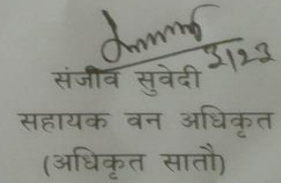 ३।२३
संजीव सुवेदी
सहायक वन अधिकृत
(अधिकृत सातौ)